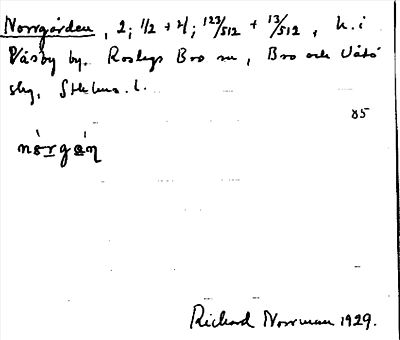 Norrgården, 2; 1/2 + 4; 123/512 + 13/512, h. i
Väsby by. Roslags Bro sn, Bro och Vätö
skg, Sthlms. l.
85
nòrgań
Richard Norrman 1929.